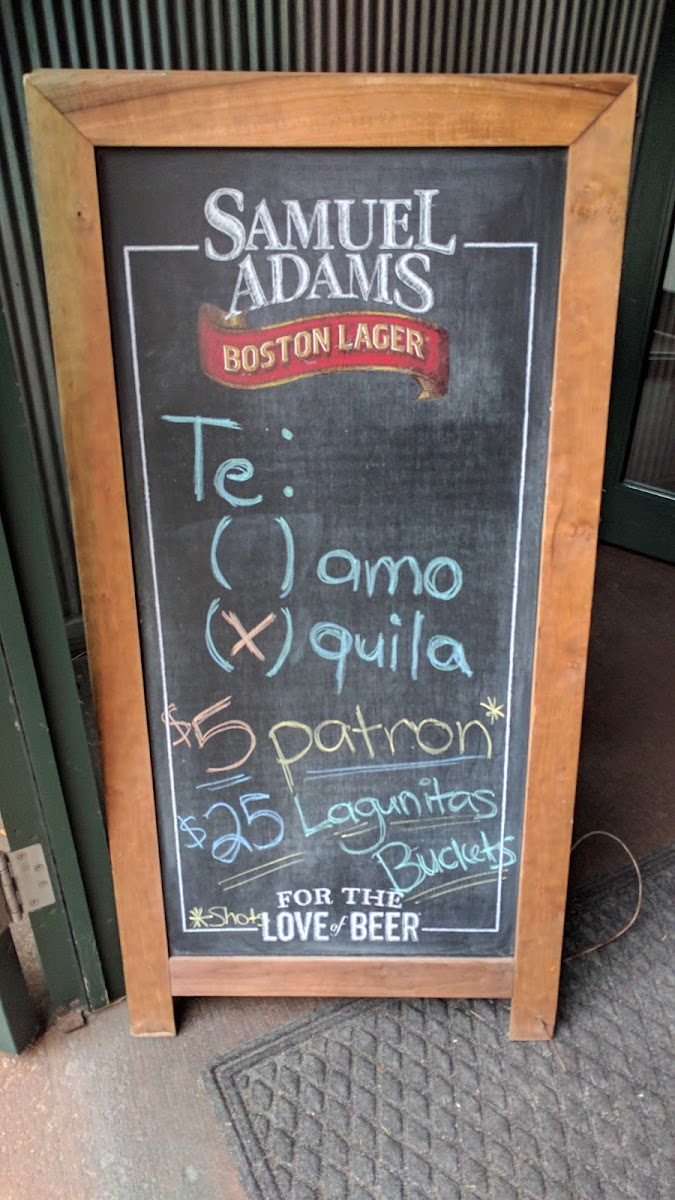 SAMUEL
ADAMS
BOSTON LAGER
Te:
( ) amo
(x) quila
$5 patron*
$25 Lagunitas
Buckets
*Shots
FOR THE
LOVE of BEER